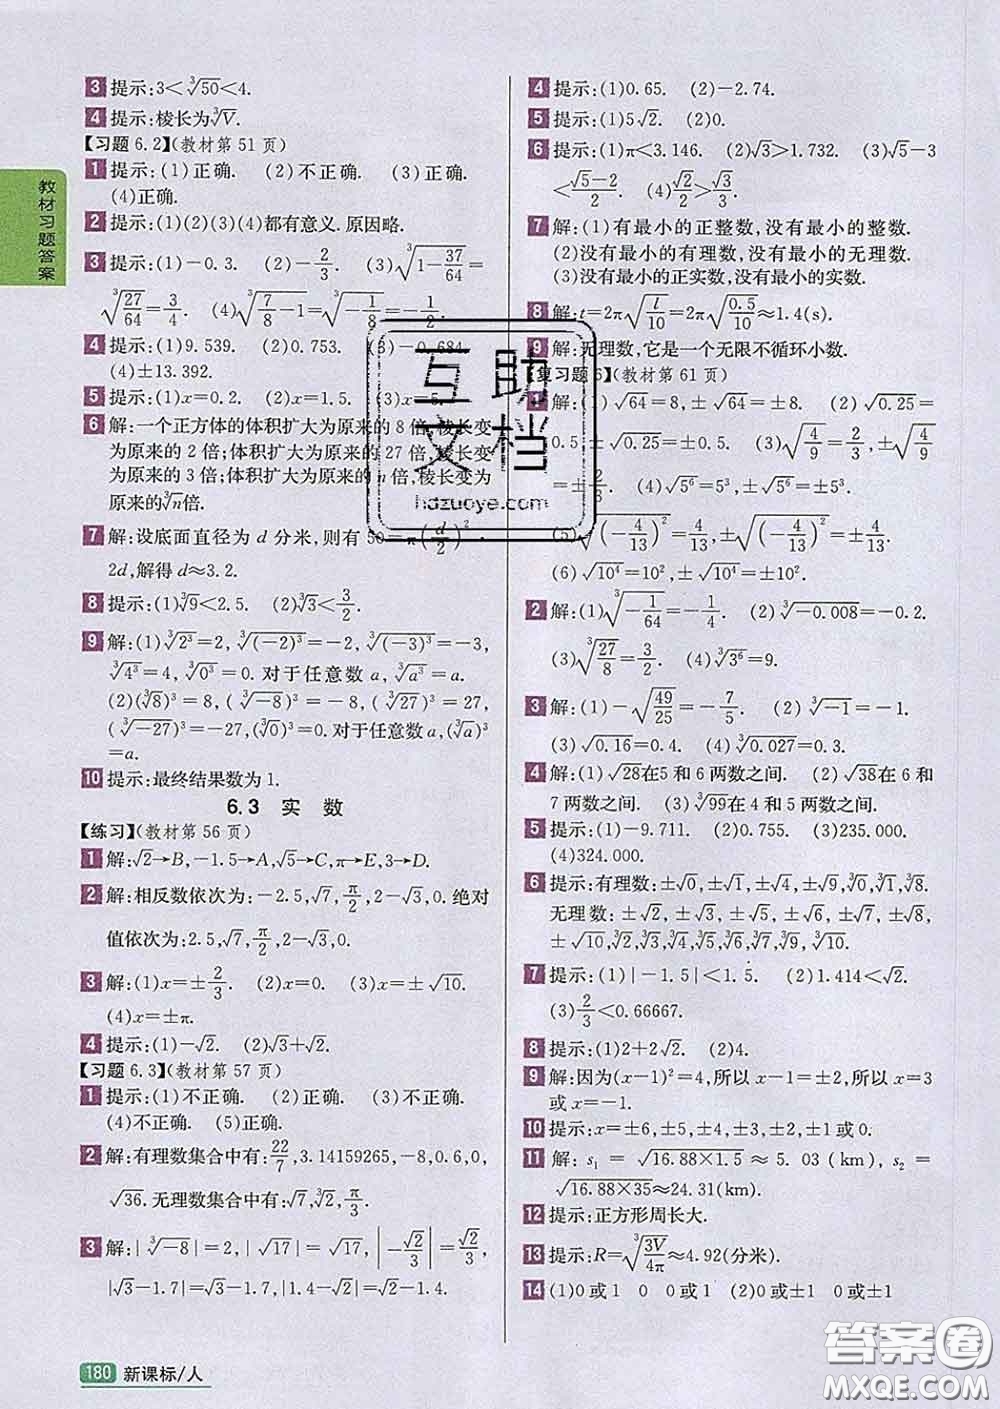 教材习题答案
3 提示:3<∛50<4.
4 提示:棱长为∛V.
【习题 6.2】(教材第 51 页)
1 提示:(1)正确. (2)不正确. (3)正确.
(4)正确.
2 提示:(1)(2)(3)(4)都有意义.原因略.
3 提示:(1)-0.3. (2)-2/3. (3)∛(1-37/64)=
∛(27/64)=3/4. (4)∛(7/8-1)=∛(-1/8)=-1/2.
4 提示:(1)9.539. (2)0.753. (3)-0.684.
(4)±13.392.
5 提示:(1)x=0.2. (2)x=1.5. (3)x=5.
6 解:一个正方体的体积扩大为原来的 8 倍,棱长变
为原来的 2 倍;体积扩大为原来的 27 倍,棱长变
为原来的 3 倍;体积扩大为原来的 n 倍,棱长变为
原来的∛n倍.
7 解:设底面直径为 d 分米,则有 50=π(d/2)²·
2d,解得 d≈3.2.
8 提示:(1)∛9<2.5. (2)∛3<3/2.
9 解:(1)∛2³=2,∛(-2)³=-2,∛(-3)³=-3,
∛4³=4,∛0³=0.对于任意数 a,∛a³=a.
(2)(∛8)³=8,(∛-8)³=-8,(∛27)³=27,
(∛-27)³=-27,(∛0)³=0.对于任意数 a,(∛a)³
=a.
10 提示:最终结果数为 1.
6.3 实 数
【练习】(教材第 56 页)
1 解:√2→B,-1.5→A,√5→C,π→E,3→D.
2 解:相反数依次为:-2.5,√7,π/2,2-√3,0.绝对
值依次为:2.5,√7,π/2,2-√3,0.
3 解:(1)x=±2/3. (2)x=0. (3)x=±√10.
(4)x=±π.
4 提示:(1)-√2. (2)√3+√2.
【习题 6.3】(教材第 57 页)
1 提示:(1)不正确. (2)正确. (3)不正确.
(4)不正确. (5)正确.
2 解:有理数集合中有:22/7,3.14159265,-8,0.6,0,
√36.无理数集合中有:√7,∛2,π/3.
3 解:|∛-8|=2,|√17|=√17,|-√2/3|=√2/3,
|√3-1.7|=√3-1.7,|1.4-√2|=√2-1.4.
180 新课标/人
4 提示:(1)0.65. (2)-2.74.
5 提示:(1)5√2. (2)0.
6 提示:(1)π<3.146. (2)√3>1.732. (3)√5-3
<(√5-2)/2. (4)√2/2>√3/3.
7 解:(1)有最小的正整数,没有最小的整数.
(2)没有最小的有理数,没有最小的无理数.
(3)没有最小的正实数,没有最小的实数.
8 解:t=2π√(l/10)=2π√(0.5/10)≈1.4(s).
9 解:无理数,它是一个无限不循环小数.
【复习题 6】(教材第 61 页)
1 解:(1)√64=8,±√64=±8. (2)√0.25=
0.5,±√0.25=±0.5. (3)√(4/9)=2/3,±√(4/9)
=±2/3. (4)√5⁶=5³,±√5⁶=±5³.
(5)√(-4/13)²=4/13,±√(-4/13)²=±4/13.
(6)√10⁴=10²,±√10⁴=±10².
2 解:(1)∛(-1/64)=-1/4. (2)∛-0.008=-0.2.
(3)∛(27/8)=3/2. (4)∛3⁶=9.
3 解:(1)-√(49/25)=-7/5. (2)∛-1=-1.
(3)√0.16=0.4. (4)∛0.027=0.3.
4 解:(1)√28在5和 6 两数之间. (2)√38在 6 和
7 两数之间. (3)∛99在 4 和 5 两数之间.
5 提示:(1)0.436. (2)0.755. (3)235.000.
(4)324.000.
6 提示:有理数:±√0,±√1,±√4,±√9,∛0,∛1,∛8.
无理数:±√2,±√3,±√5,±√6,±√7,±√8,
±√10,∛2,∛3,∛4,∛5,∛6,∛7,∛9,∛10.
7 提示:(1)|-1.5|<1.5. (2)1.414<√2.
(3)2/3<0.66667.
8 提示:(1)2+2√2. (2)4.
9 解:因为(x-1)²=4,所以 x-1=±2,所以 x=3
或 x=-1.
10 提示:x=±6,±5,±4,±3,±2,±1或 0.
11 解:s₁=√16.88×1.5≈5.03(km),s₂=
√16.88×35≈24.31(km).
12 提示:正方形周长大.
13 提示:R=∛(3V/4π)≈4.92(分米).
14 (1)0 或 1 0 0 或 1 (2)0 或±1 0 或±1
互助文档
hdzuoye.com
答案圈
MXQE.COM